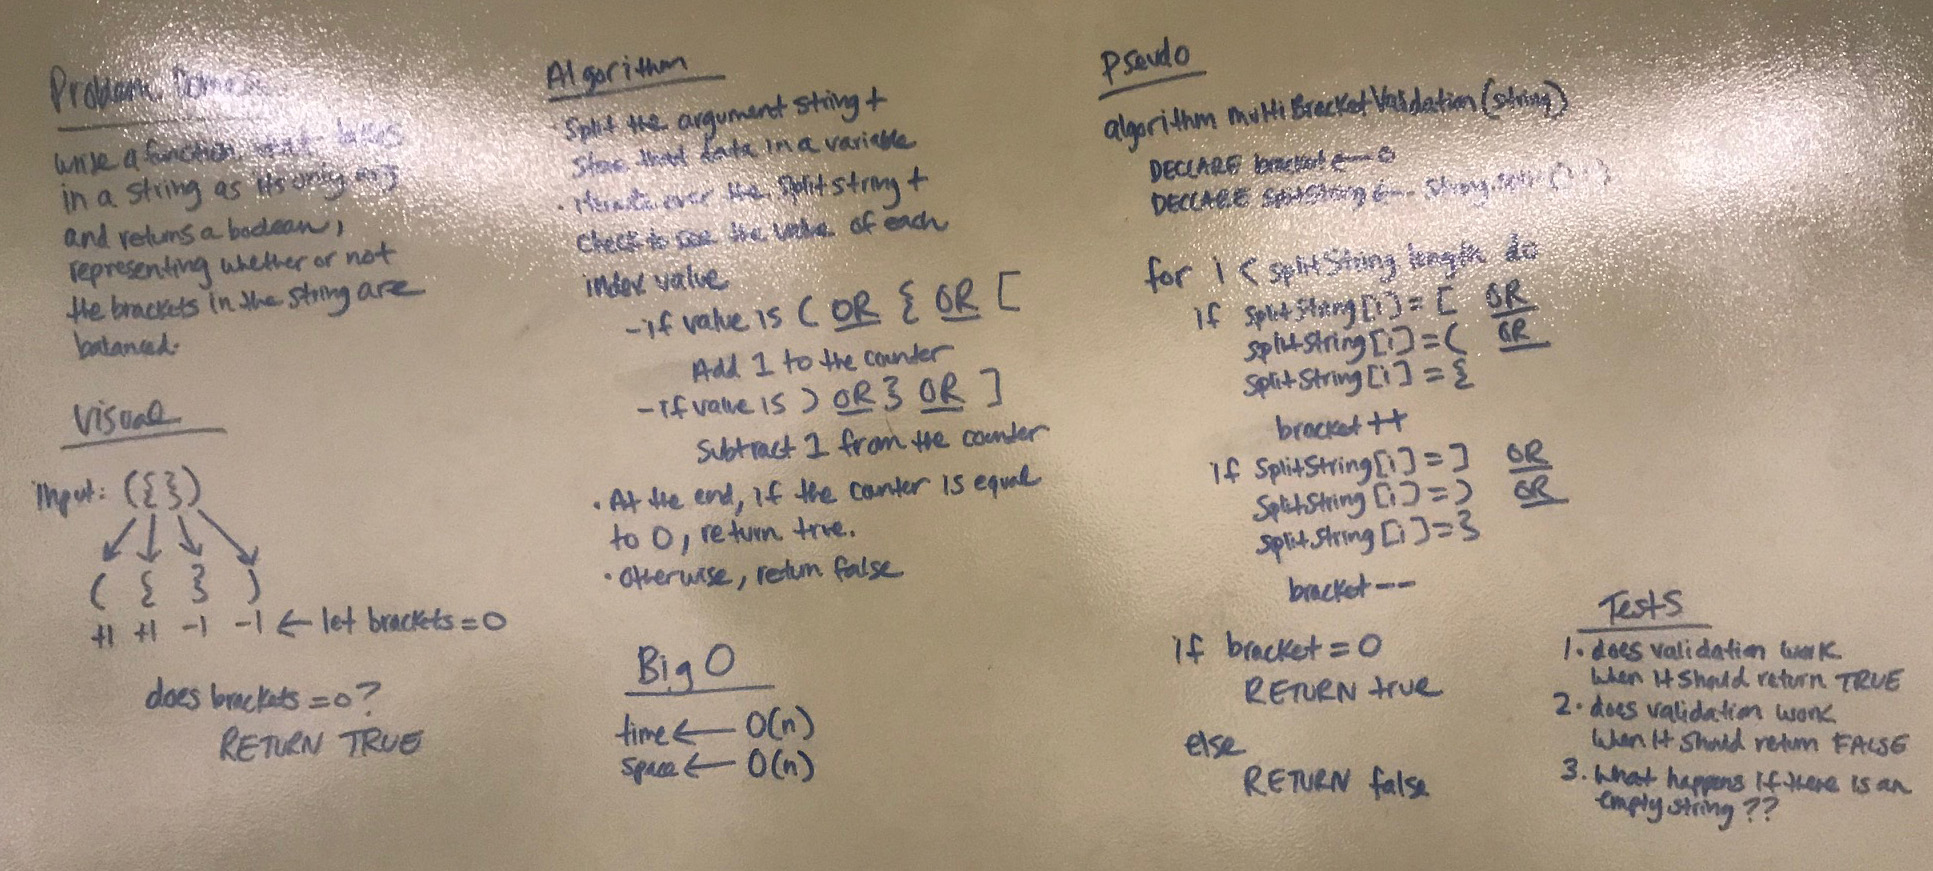 Problem Domain
write a function that takes
in a string as its only arg
and returns a boolean,
representing whether or not
the brackets in the string are
balanced.
Visual
Input: ({})
( { } )
+1 +1 -1 -1 ← let brackets = 0
does brackets = 0?
RETURN TRUE
Algorithm
· Split the argument string +
store that data in a variable
· iterate over the split string +
check to see the value of each
index value
- if value is ( OR { OR [
Add 1 to the counter
- if value is ) OR } OR ]
Subtract 1 from the counter
· At the end, if the counter is equal
to 0, return true.
· Otherwise, return false
Big O
time ← O(n)
space ← O(n)
Pseudo
algorithm multiBracketValidation(string)
DECLARE bracket ← 0
DECLARE splitString ← String.split('')
for i < splitString length do
if splitString[i] = [ OR
splitString[i] = ( OR
splitString[i] = {
bracket ++
if splitString[i] = ] OR
splitString[i] = ) OR
splitString[i] = }
bracket --
if bracket = 0
RETURN true
else
RETURN false
Tests
1. does validation work
when it should return TRUE
2. does validation work
when it should return FALSE
3. What happens if there is an
empty string ??